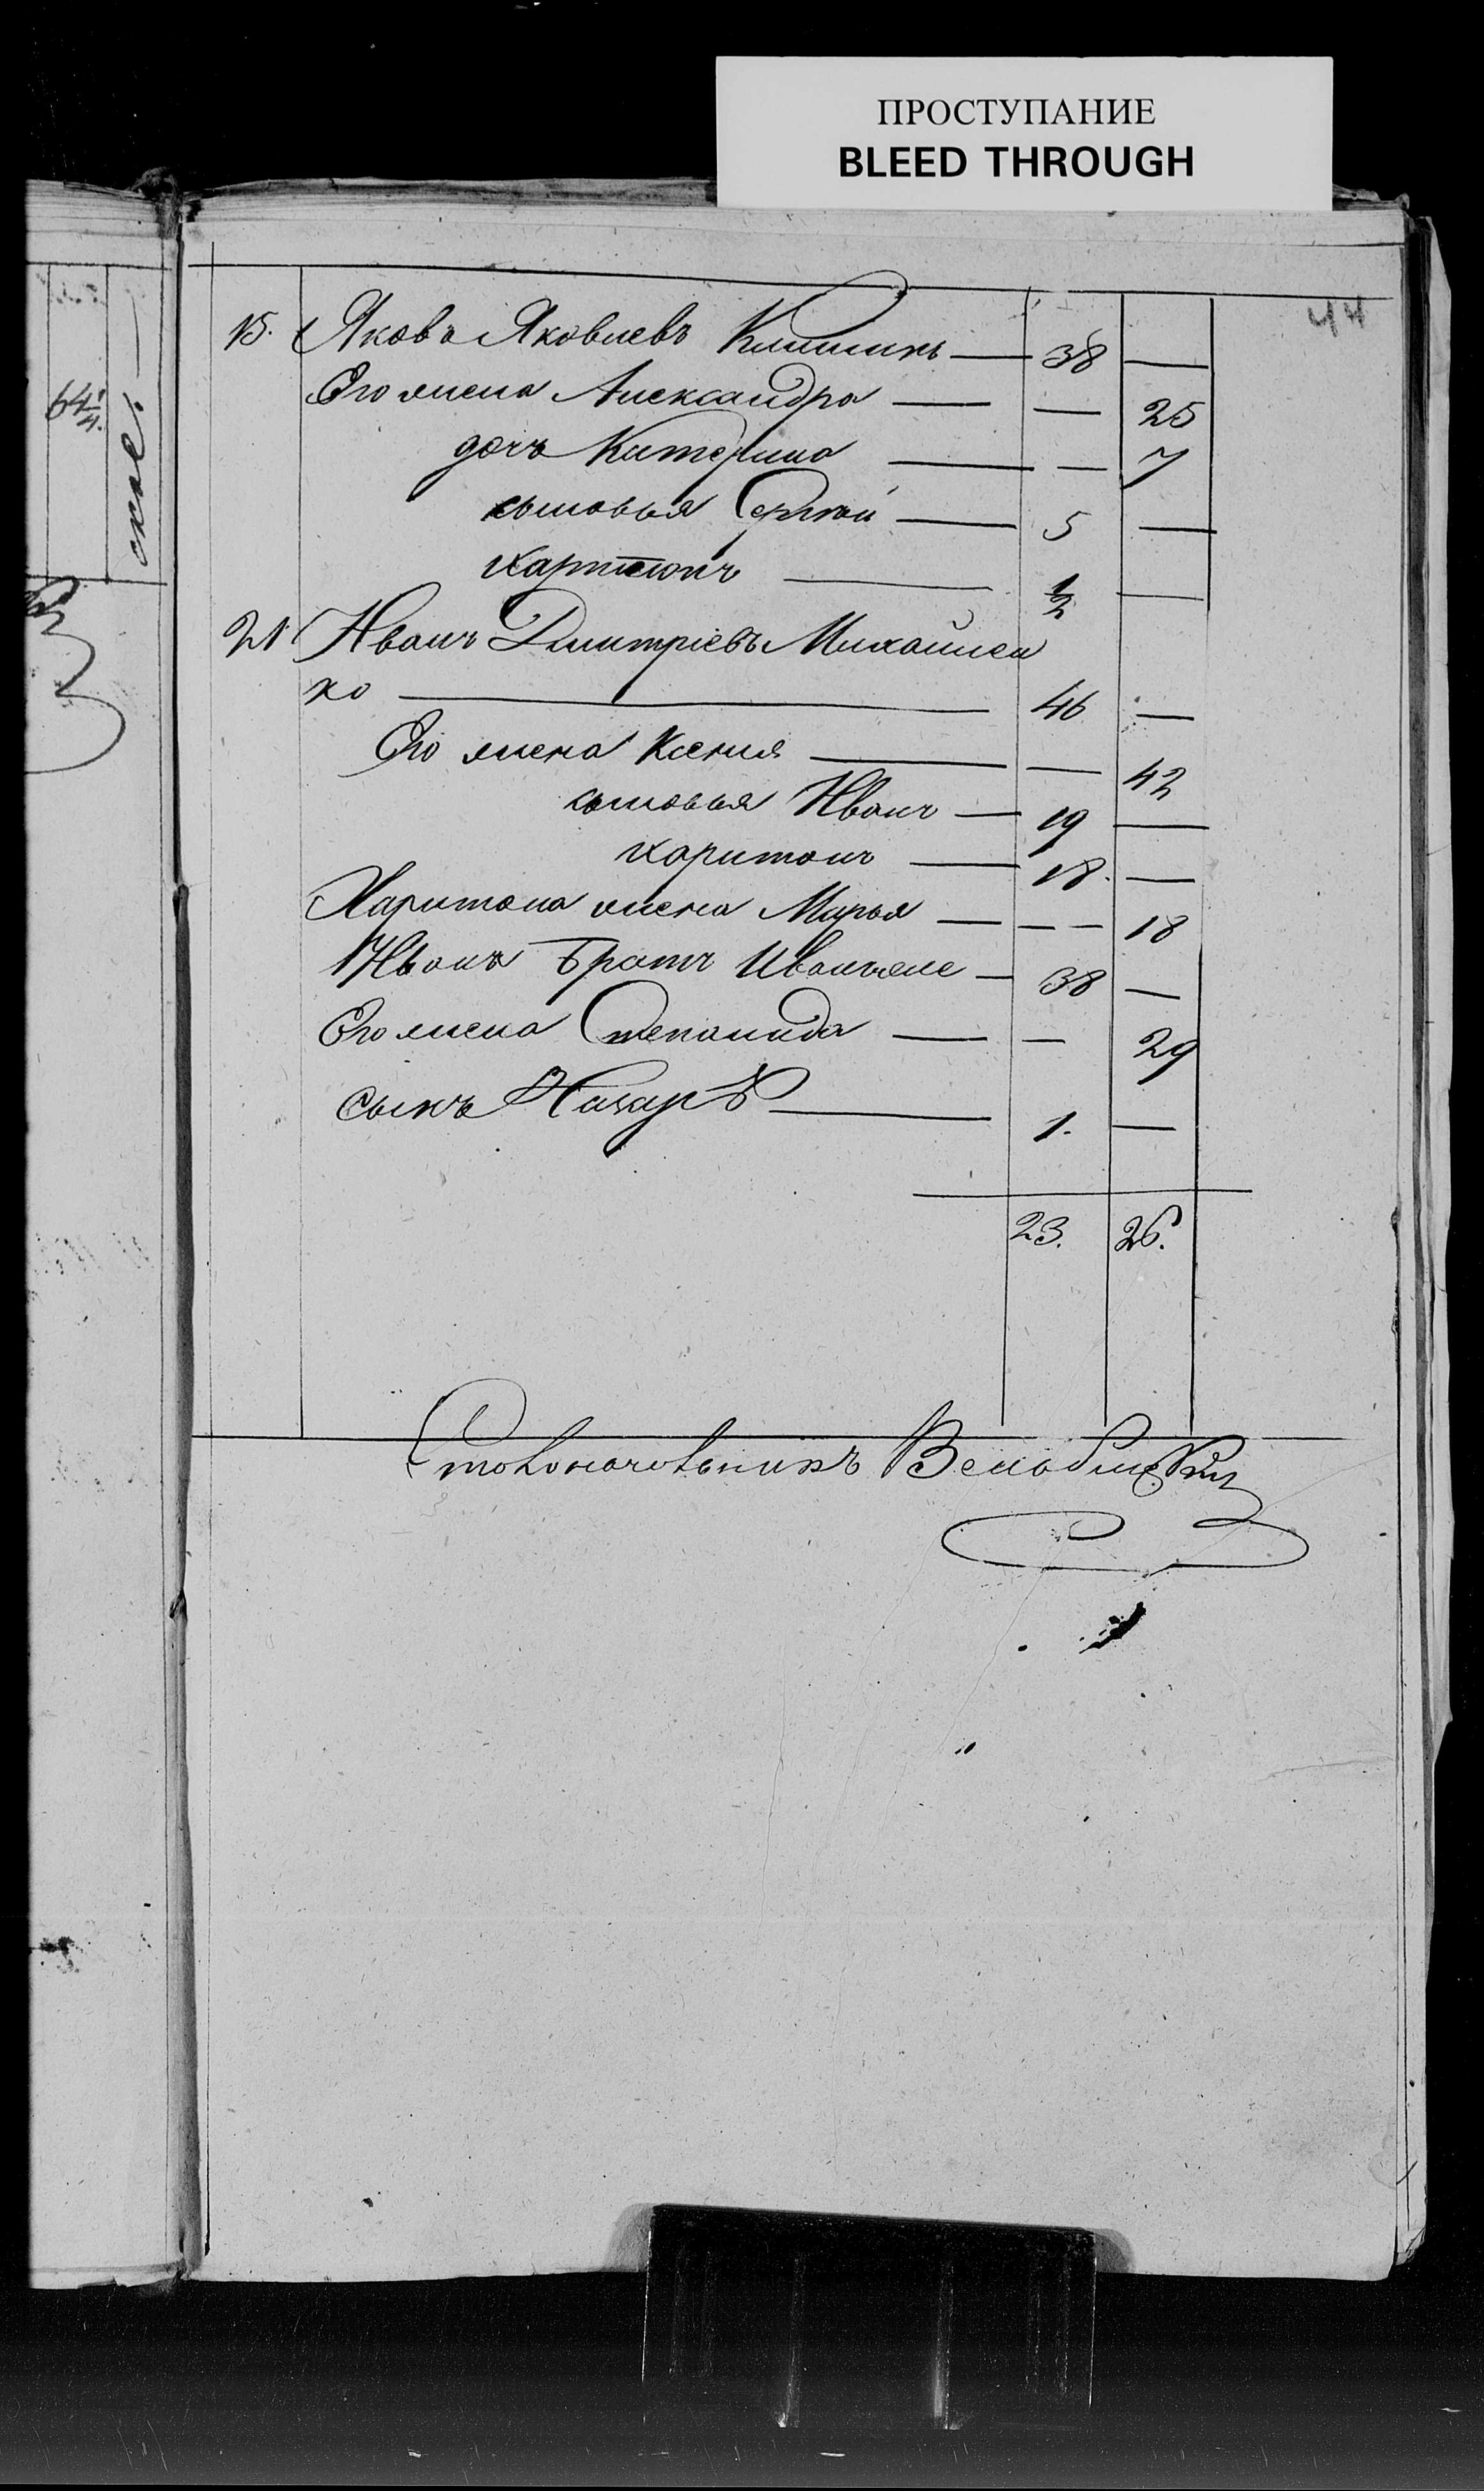 ПРОСТУПАНИЕ
BLEED THROUGH
44
64 1/4.
15. Яковъ Яковлевъ — 38 —
Его жена Александра — — 25
дочь Катерина — — 7
сыновья Сергѣй — 5 —
Харитонъ — 1/2 —
21 Иванъ Дмитріевъ Михайлен
ко — 46 —
Его жена Ксения — — 42
сыновья Иванъ — 19 —
Харитонъ — 18. —
Харитона жена Марья — — — 18
Ивана братъ Иванъ же — 38 —
Его жена Степанида — — 29
сынъ Назаръ — 1. —
23. 26.
Столоначальникъ